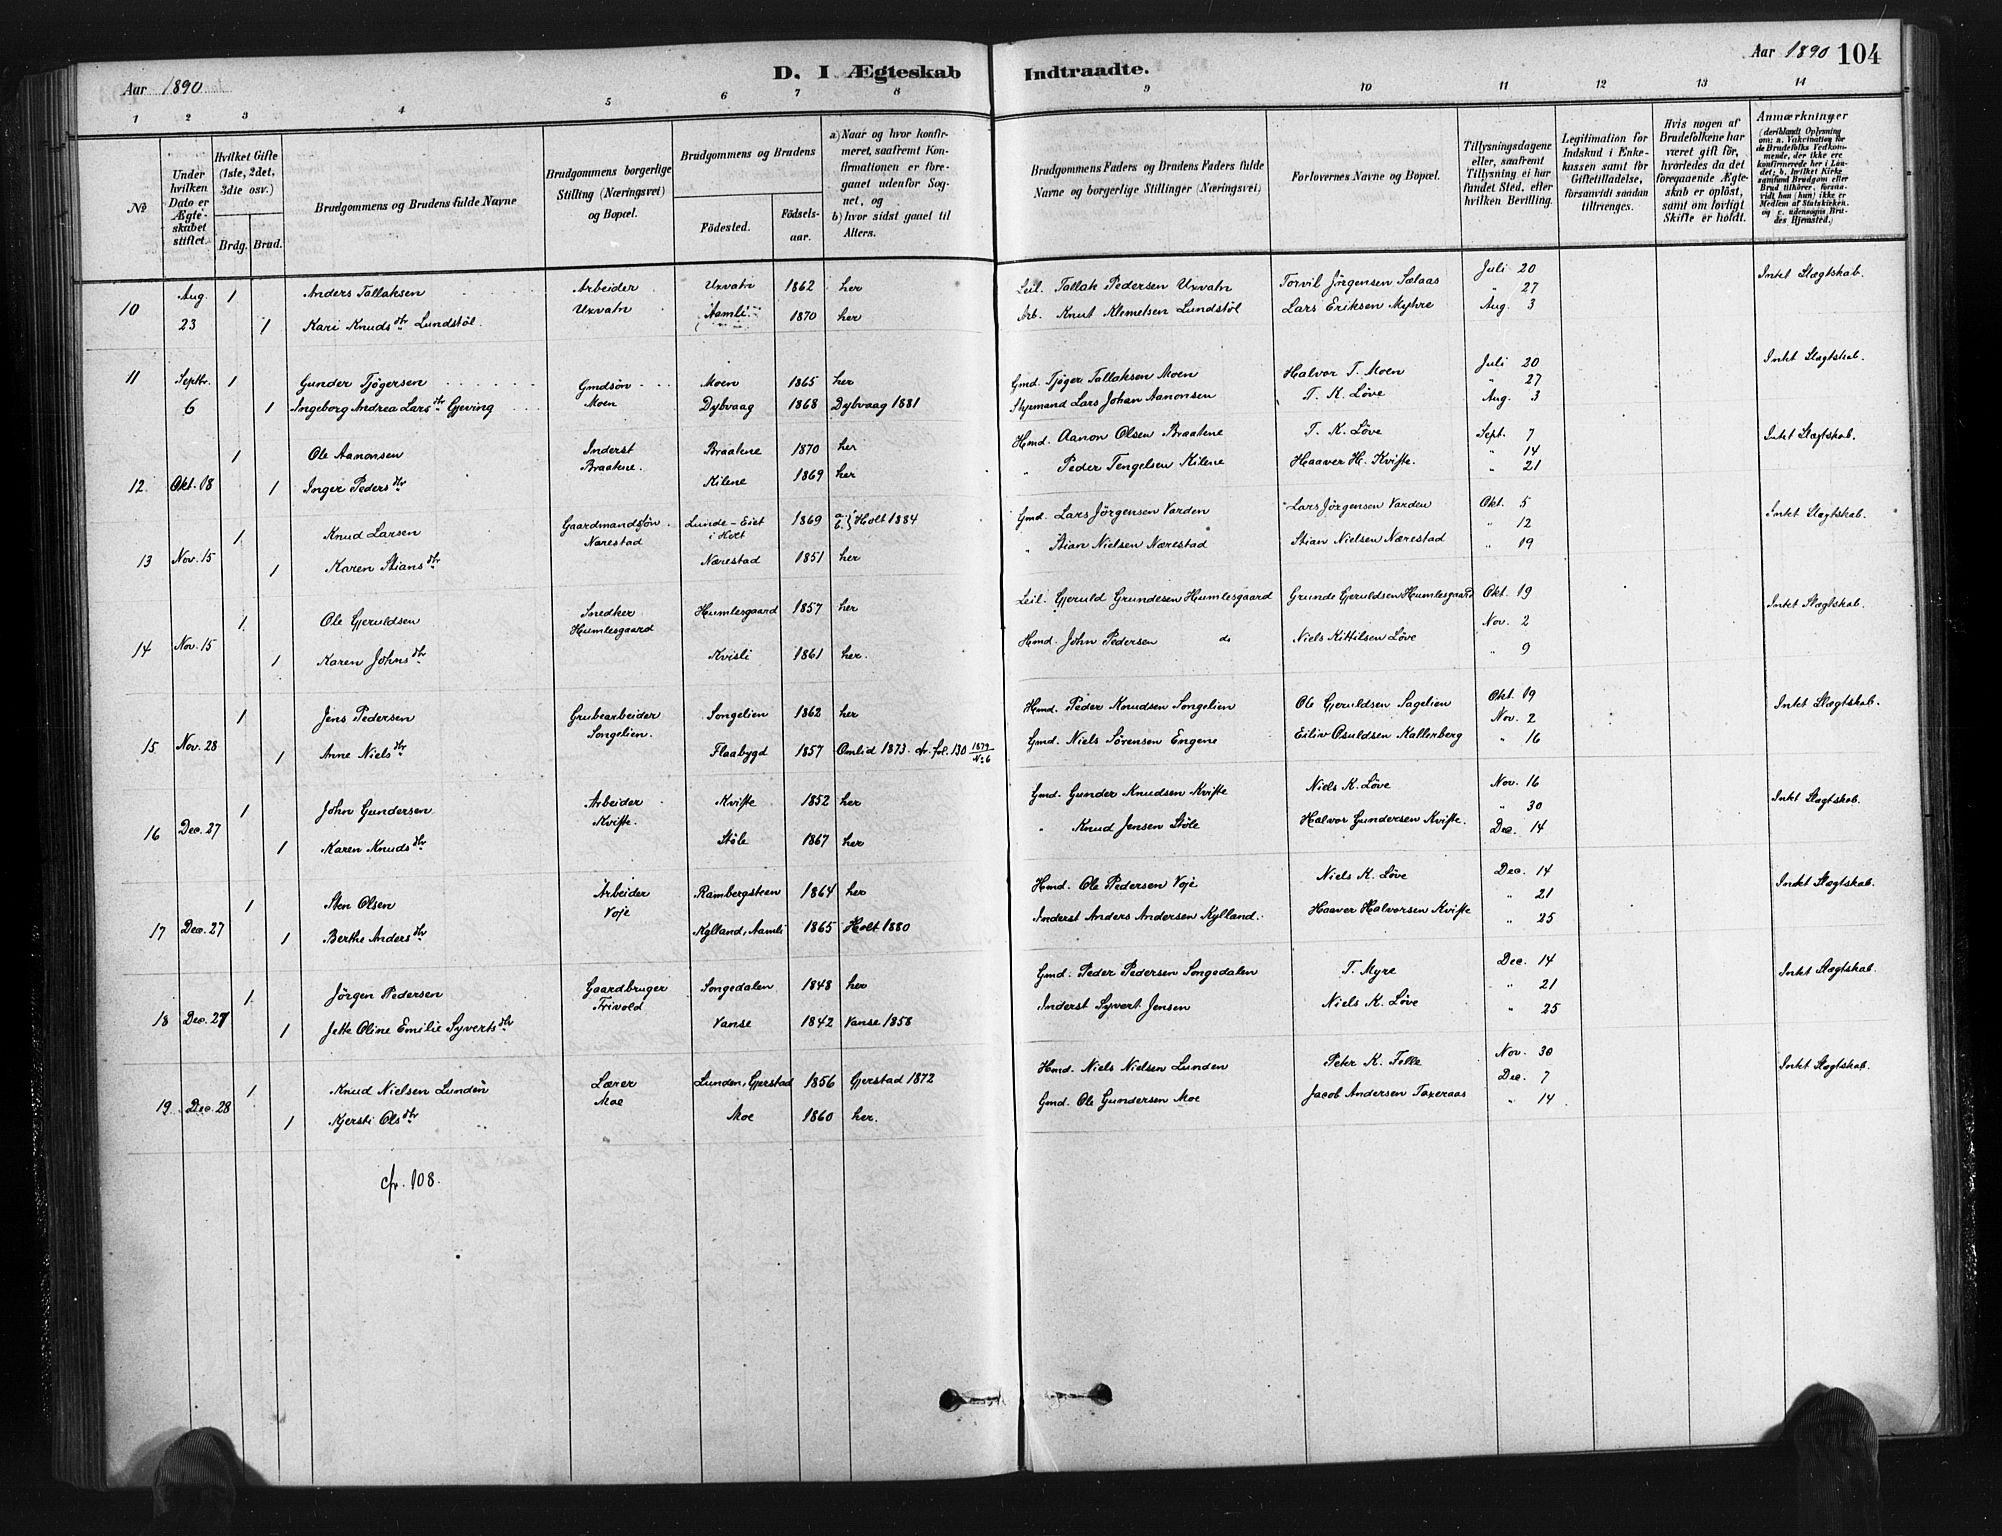 Aar 1890 D. I Ægteskab Indtraadte. Aar 1890 104
1 2 3 4 5 6 7 8 9 10 11 12 13 14
No
Under hvilken Dato er Ægteskabet stiftet.
Hvilket Gifte (1ste, 2det, 3dte osv.)
Brdg. Brud.
Brudgommens og Brudens fulde Navne
Brudgommens borgerlige Stilling (Næringsvei) og Bopæl.
Brudgommens og Brudens
Fødested. Fødsels-aar.
a) Naar og hvor konfirmeret, saafremt Konfirmationen er foregaaet udenfor Sognet, og
b) hvor sidst gaaet til Alters.
Brudgommens Faders og Brudens Faders fulde Navne og borgerlige Stillinger (Næringsvei)
Forlovernes Navne og Bopæl.
Tillysningsdagene eller, saafremt Tillysning ei har fundet Sted, efter hvilken Bevilling.
Legitimation for Indskud i Enkekassen samt for Giftetilladelse, forsaavidt saadan tiltrænges.
Hvis nogen af Brudefolkene har været gift før, hvorledes da det foregaaende Ægteskab er opløst, samt om lovligt Skifte er holdt.
Anmærkninger
(deriblandt Oplysning om: a. Vakcination for de Brudefolks Vedkommende, der ikke ere konfirmerede her i Landet; b. hvilket Kirkesamfund Brudgom eller Brud tilhører, forsaavidt han (hun) ikke er Medlem af Statskirken. og c. udensogns Brudes Hjemsted.)
10 Aug. 1 Anders Tallaksen Arbeider Uxvatn 1862 her Leil. Tallak Pedersen Uxvatn Torvil Jørgensen Sælaas Juli 20 Intet Slægtskab.
Uxvatn " 27
23 1 Kari Knudsdtr Lundstøl. Aamli 1870 her Arb. Knut Klemetsen Lundstøl Lars Eriksen Myhre Aug. 3
11 Septbr. 1 Gunder Tjøgersen Gmdsøn Moen 1865 her Gmd. Tjøger Tallaksen Moen Halvor T. Moen Juli 20 Intet Slægtskab.
" 27
6 1 Ingeborg Andrea Larsdtr Gjeving Moen Dybvaag 1868 Dybvaag 1881 Styrmand Lars Johan Aanonsen T. K. Løve Aug. 3
1 Ole Aanonsen Inderst Braatene 1870 her Hmd. Aanon Olsen Braatene T. K. Løve Sept. 7 Intet Slægtskab.
Braatene. " 14
12. Okt. 18 1 Inger Pedersdtr Kilene 1869 her " Peder Tengelsen Kilene Haaver H. Kvifte. " 21
1 Knud Larsen Gaardmandsøn Lunde-Eiet i Holt 1869 a. b. } Holt 1884 Gmd. Lars Jørgensen Varden Lars Jørgensen Varden Okt. 5 Intet Slægtskab.
Nærestad " 12
13 Nov. 15 1 Karen Stiansdtr Nærestad 1851 her " Stian Nielsen Nærestad Stian Nielsen Nærestad " 19
1 Ole Gjeruldsen Snedker Humlesgaard 1857 her Leil. Gjeruld Grundesen Humlesgaard Grunde Gjeruldsen Humlesgaard Okt. 19 Intet Slægtskab.
Humlesgaard Nov. 2
14 Nov. 15 1 Karen Johnsdtr Kvisli 1861 her. Hmd. John Pedersen do Niels Kittilsen Løve " 9
1 Jens Pedersen Grubearbeider Songelien 1862 her Hmd. Peder Knudsen Songelien Ole Gjeruldsen Sagelien Okt. 19 Intet Slægtskab.
Songelien. Nov. 2
15 Nov. 28 1 Anne Nielsdtr Flaabygd 1857 Omlid 1873. cfr. fol. 130 1879/No 6 Gmd. Niels Sørensen Engene Eiliv Osuldsen Kallerberg " 16
1 John Gundersen Arbeider Kvifte 1852 her Gmd. Gunder Knudsen Kvifte Niels K. Løve Nov. 16 Intet Slægtskab.
Kvifte. " 30
16 Dec. 27 1 Karen Knudsdtr Støle 1867 her " Knud Jensen Støle Halvor Gundersen Kvifte. Dec. 14
1 Sten Olsen Arbeider Rambergsteen 1864 her Hmd. Ole Pedersen Voje Niels K. Løve Dec. 14 Intet Slægtskab.
Voje " 21
17 Dec. 27 1 Berthe Andersdtr Kylland, Aamli 1865 Holt 1880 Inderst Anders Andersen Kylland. Haaver Halvorsen Kvifte " 25
1 Jørgen Pedersen Gaardbruger Songedalen 1848 her Gmd. Peder Pedersen Songedalen T. Myre Dec. 14 Intet Slægtskab.
Trivold " 21
18 Dec. 27 1 Jette Oline Emilie Syvertsdtr Vanse 1842 Vanse 1858 Inderst Syvert Jensen Niels K. Løve " 25
1 Knud Nielsen Lunden Lærer Lunden, Gjerstad 1856 Gjerstad 1872 Hmd. Niels Nielsen Lunden Peter K. Felle Nov. 30 Intet Slægtskab.
Moe Dec. 7
19. Dec. 28 1 Kjersti Olsdtr Moe 1860 her. Gmd. Ole Gundersen Moe Jacob Andersen Taxeraas " 14
cfr. 108.